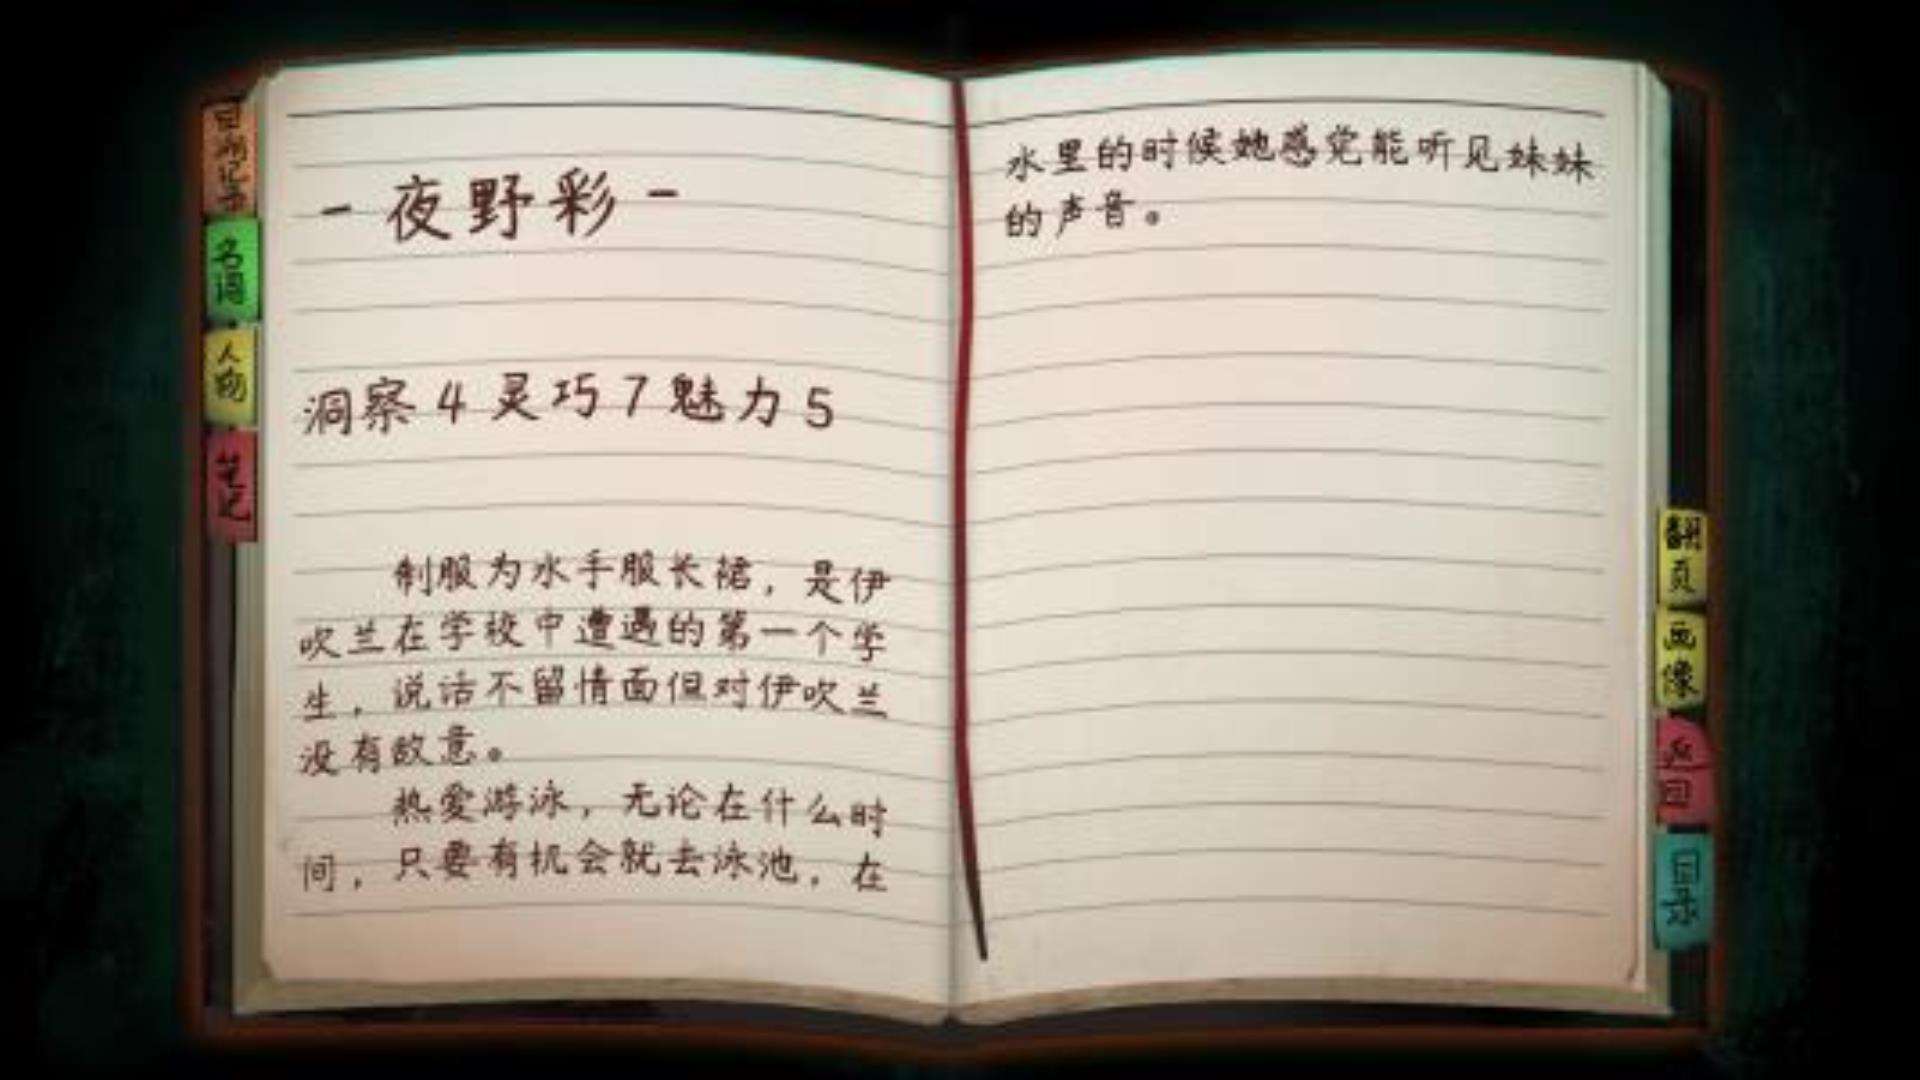 目标记录
名词
人物
笔记
- 夜野彩 -
洞察 4 灵巧 7 魅力 5
制服为水手服长裙，是伊
吹兰在学校中遭遇的第一个学
生，说话不留情面但对伊吹兰
没有敌意。
热爱游泳，无论在什么时
间，只要有机会就去泳池，在
水里的时候她感觉能听见妹妹
的声音。
翻页
画像
返回
目录